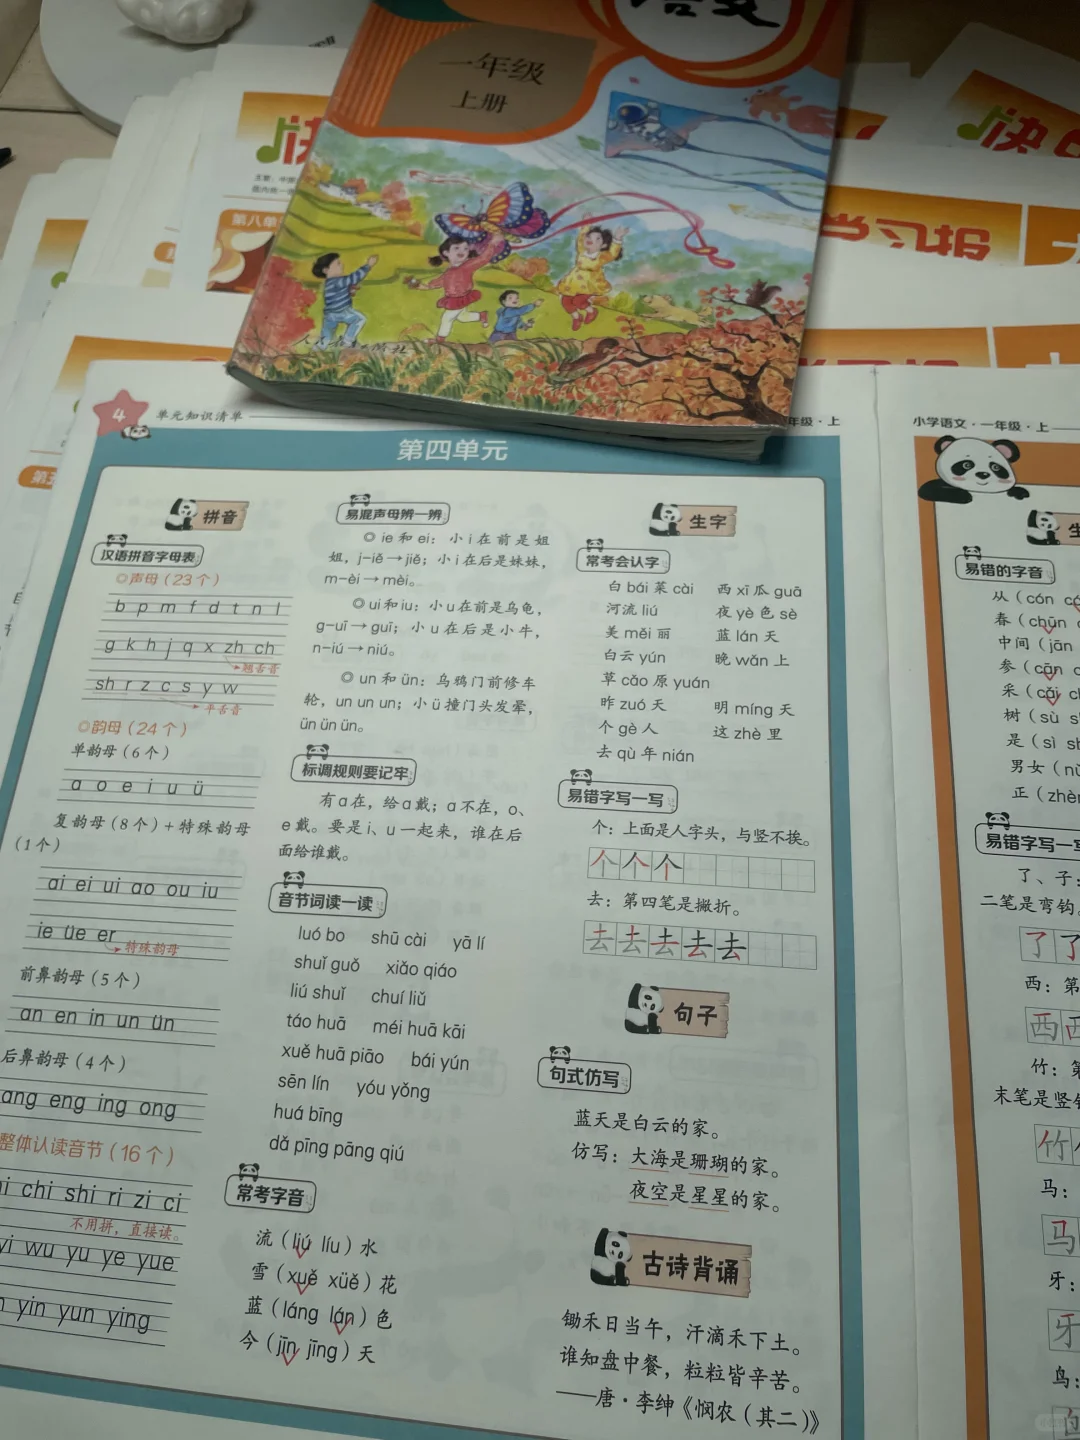 语文
一年级
上册
快
第八单
学习报
人民教育出版社
4
单元知识清单
年级·上
第四单元
拼音
汉语拼音字母表
◎声母（23个）
b p m f d t n l
g k h j q x zh ch
翘舌音
sh r z c s y w
平舌音
◎韵母（24个）
单韵母（6个）
a o e i u ü
复韵母（8个）+特殊韵母
（1个）
ai ei ui ao ou iu
ie üe er
特殊韵母
前鼻韵母（5个）
an en in un ün
后鼻韵母（4个）
ang eng ing ong
整体认读音节（16个）
chi shi ri zi ci
不用拼，直接读。
yi wu yu ye yue
yin yun ying
易混声母辨一辨
◎ ie 和 ei：小 i 在前是姐
姐，j-iě→jiě；小 i 在后是妹妹，
m-èi→mèi。
◎ ui 和 iu：小 u 在前是乌龟，
g-uī→guī；小 u 在后是小牛，
n-iú→niú。
◎ un 和 ün：乌鸦门前修车
轮，un un un；小 ü 撞门头发晕，
ün ün ün。
标调规则要记牢
有 a 在，给 a 戴；a 不在，o、
e 戴。要是 i、u 一起来，谁在后
面给谁戴。
音节词读一读
luó bo shū cài yā lí
shuǐ guǒ xiǎo qiáo
liú shuǐ chuí liǔ
táo huā méi huā kāi
xuě huā piāo bái yún
sēn lín yóu yǒng
huá bīng
dǎ pīng pāng qiú
常考字音
流（liú líu）水
雪（xuě xüě）花
蓝（láng lán）色
今（jīn jīng）天
生字
常考会认字
白 bái 菜 cài 西 xī 瓜 guā
河流 liú 夜 yè 色 sè
美 měi 丽 蓝 lán 天
白云 yún 晚 wǎn 上
草 cǎo 原 yuán
昨 zuó 天 明 míng 天
个 gè 人 这 zhè 里
去 qù 年 nián
易错字写一写
个：上面是人字头，与竖不挨。
个 个 个
去：第四笔是撇折。
去 去 去 去 去
句子
句式仿写
蓝天是白云的家。
仿写：大海是珊瑚的家。
夜空是星星的家。
古诗背诵
锄禾日当午，汗滴禾下土。
谁知盘中餐，粒粒皆辛苦。
——唐·李绅《悯农（其二）》
小学语文·一年级·上
易错的字音
从（cón
春（chūn
中间（jān
参（cān
采（cǎi
树（sù
是（sì
男女（nǚ
正（zhèn
易错字写一写
了、子：
二笔是弯钩。
了 了
西：第
西 西
竹：第
末笔是竖钩
竹
马：
马
牙：
牙
鸟：